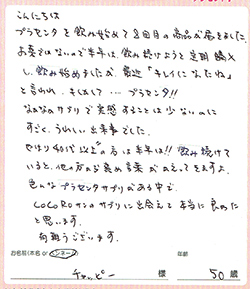 こんにちは
プラセンタを飲み始めて2回目の商品が届きました。
お安くはないので半年は、飲み続けようと定期購入
し、飲み始めましたが、最近「キレイになったね」
と言われ、そばして…プラセンタ!!
なかなかサプリで実感することは少ないのに
すごく、うれしい出来事でした。
やはり40代以上の方は半年は!!飲み続けて
いると、他の方からの褒め言葉がふえてきますよ。
色んなプラセンタサプリがある中で、
CoCoRoサンのサプリに出会えて本当に良かった
と思います。
有難うございます。
お名前(本名 or ペンネーム) 年齢
チャッピー 様 50歳